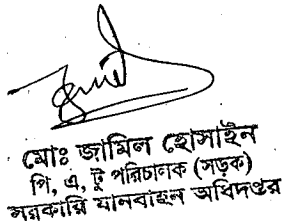 মোঃ জামিল হোসাইন
পি, এ, টু পরিচালক (সড়ক)
সরকারি যানবাহন অধিদপ্তর